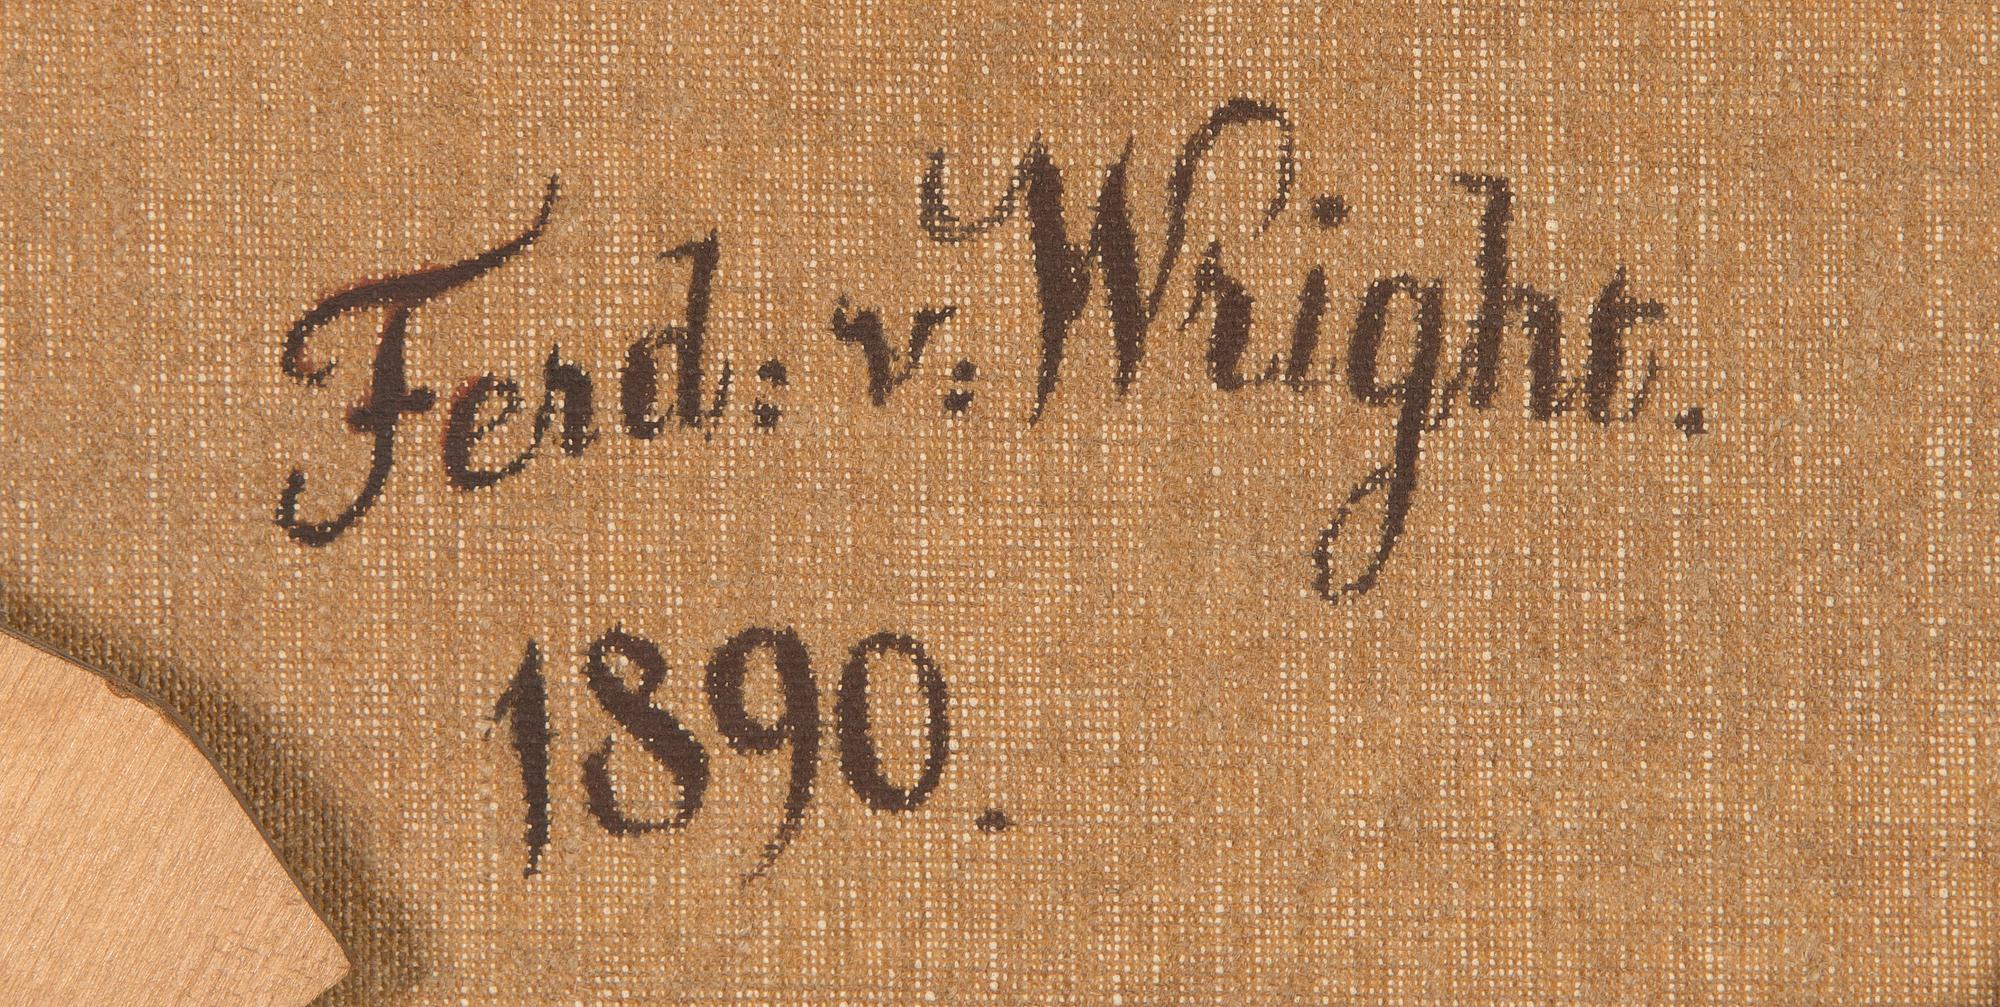 Ferd: v: Wright.
1890.